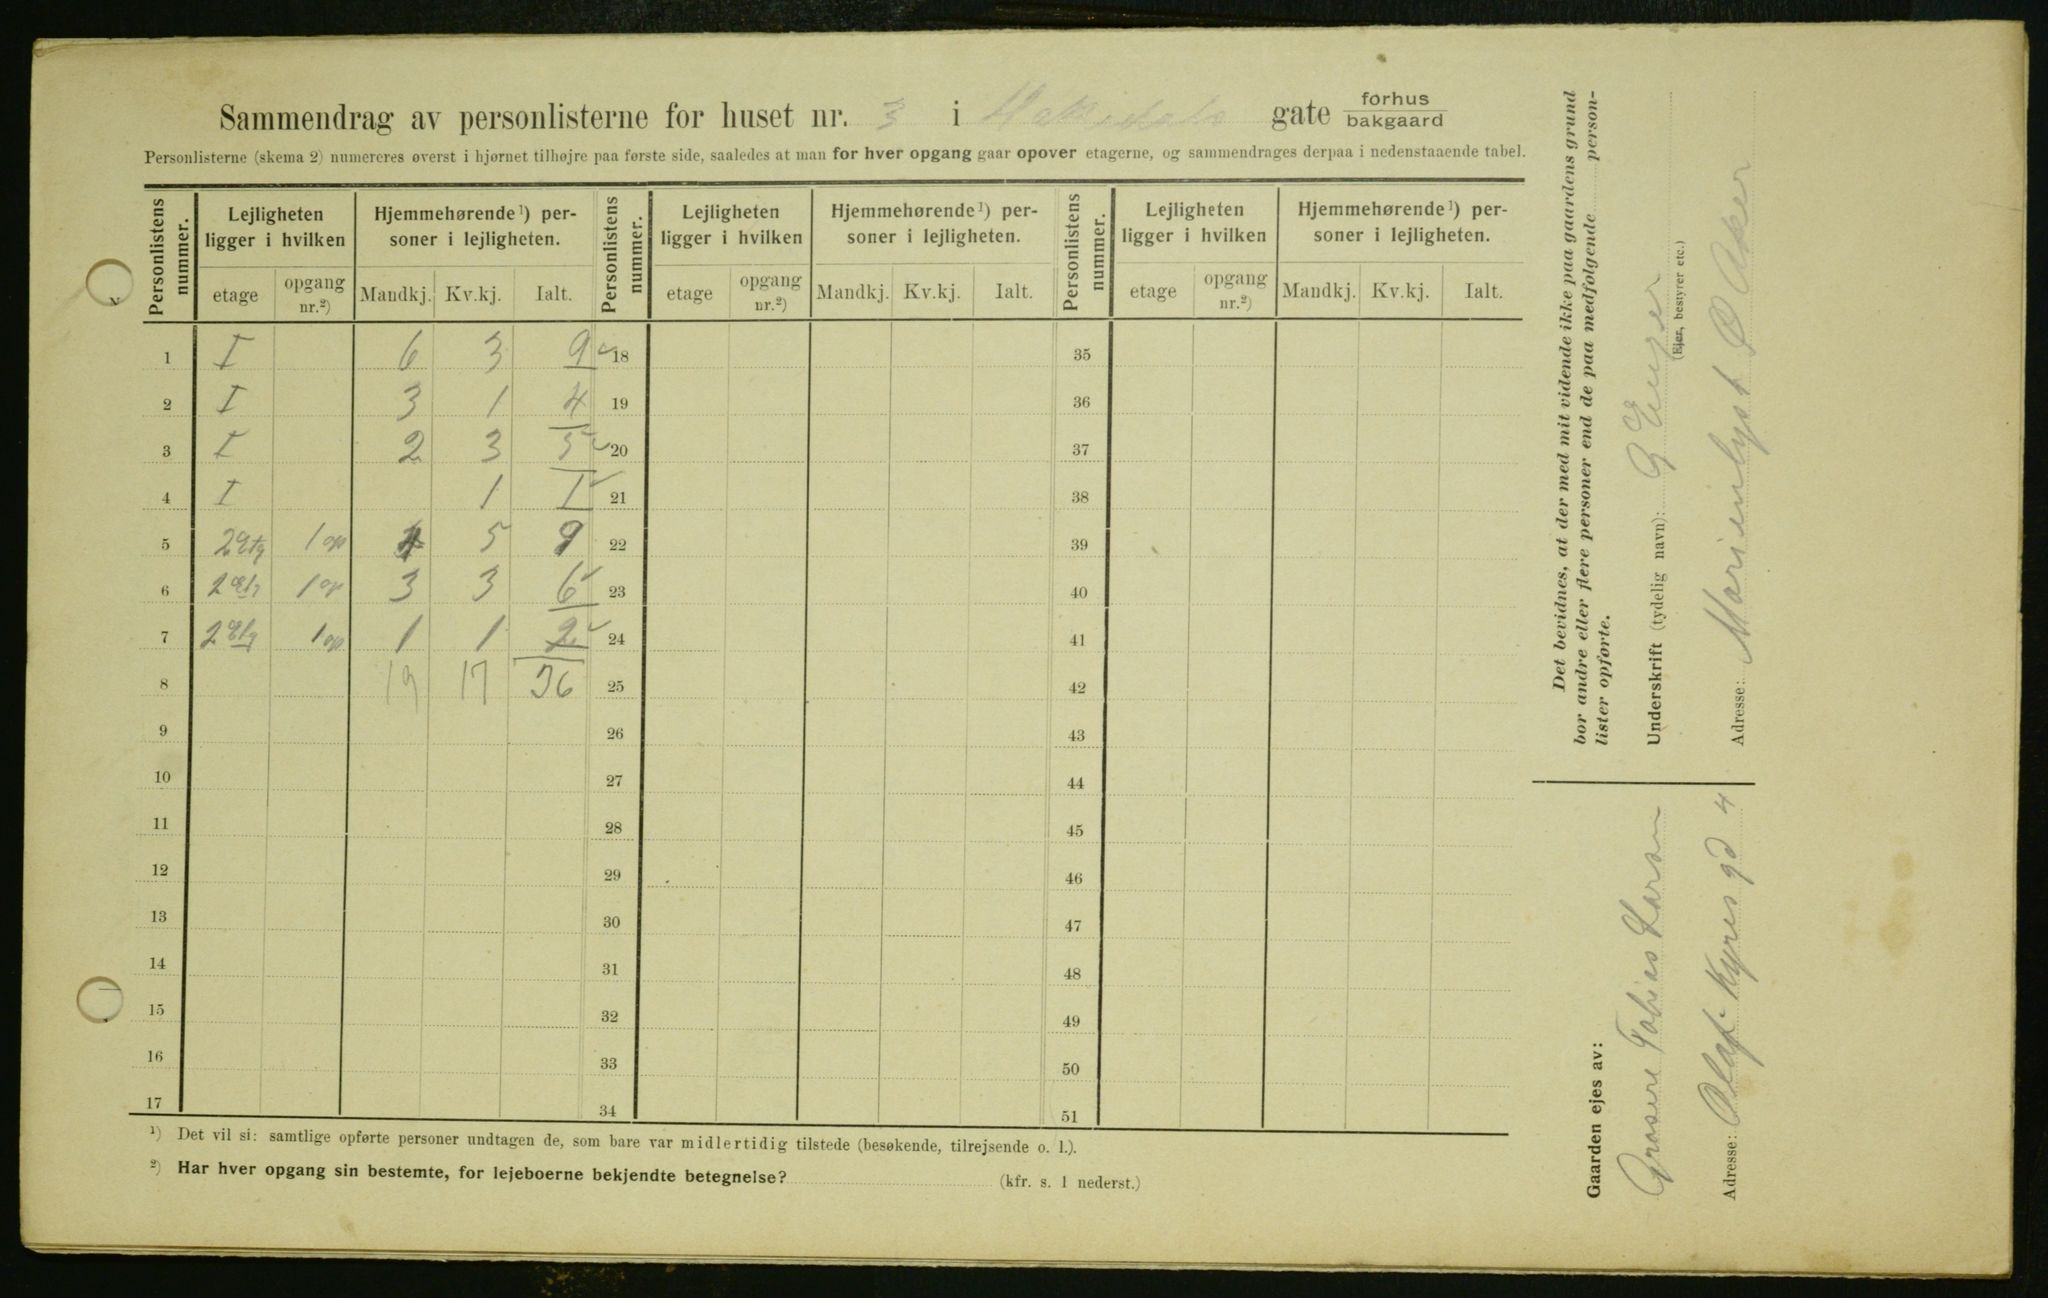 Sammendrag av personlisterne for huset nr. 3 i gate forhus bakgaard
Personlisterne (skema 2) numereres øverst i hjørnet tilhøjre paa første side, saaledes at man for hver opgang gaar opover etagerne, og sammendrages derpaa i nedenstaaende tabel.
Personlistens nummer. Lejligheten ligger i hvilken Hjemmehørende¹) personer i lejligheten. Personlistens nummer. Lejligheten ligger i hvilken Hjemmehørende¹) personer i lejligheten. Personlistens nummer. Lejligheten ligger i hvilken Hjemmehørende¹) personer i lejligheten.
etage opgang nr.²) Mandkj. Kv.kj. Ialt. etage opgang nr.²) Mandkj. Kv.kj. Ialt. etage opgang nr.²) Mandkj. Kv.kj. Ialt.
1 I 6 3 9 18 35
2 I 3 1 4 19 36
3 I 2 3 5 20 37
4 I 1 1 21 38
5 2 Etg 1 op 4 5 9 22 39
6 2 Etg 1 op 3 3 6 23 40
7 2 Etg 1 op 1 1 2 24 41
8 19 17 36 25 42
9 26 43
10 27 44
11 28 45
12 29 46
13 30 47
14 31 48
15 32 49
16 33 50
17 34 51
¹) Det vil si: samtlige opførte personer undtagen de, som bare var midlertidig tilstede (besøkende, tilrejsende o. l.).
²) Har hver opgang sin bestemte, for lejeboerne bekjendte betegnelse? (kfr. s. 1 nederst.)
Det bevidnes, at der med mit vidende ikke paa gaardens grund
bor andre eller flere personer end de paa medfølgende person-
lister opførte.
Underskrift (tydelig navn): G Enger
(Ejer, bestyrer etc.)
Adresse: Marienlyst Ø Aker
Gaarden ejes av:
Grosere Tobias Larsen
Adresse: Olaf Kyres gd 4